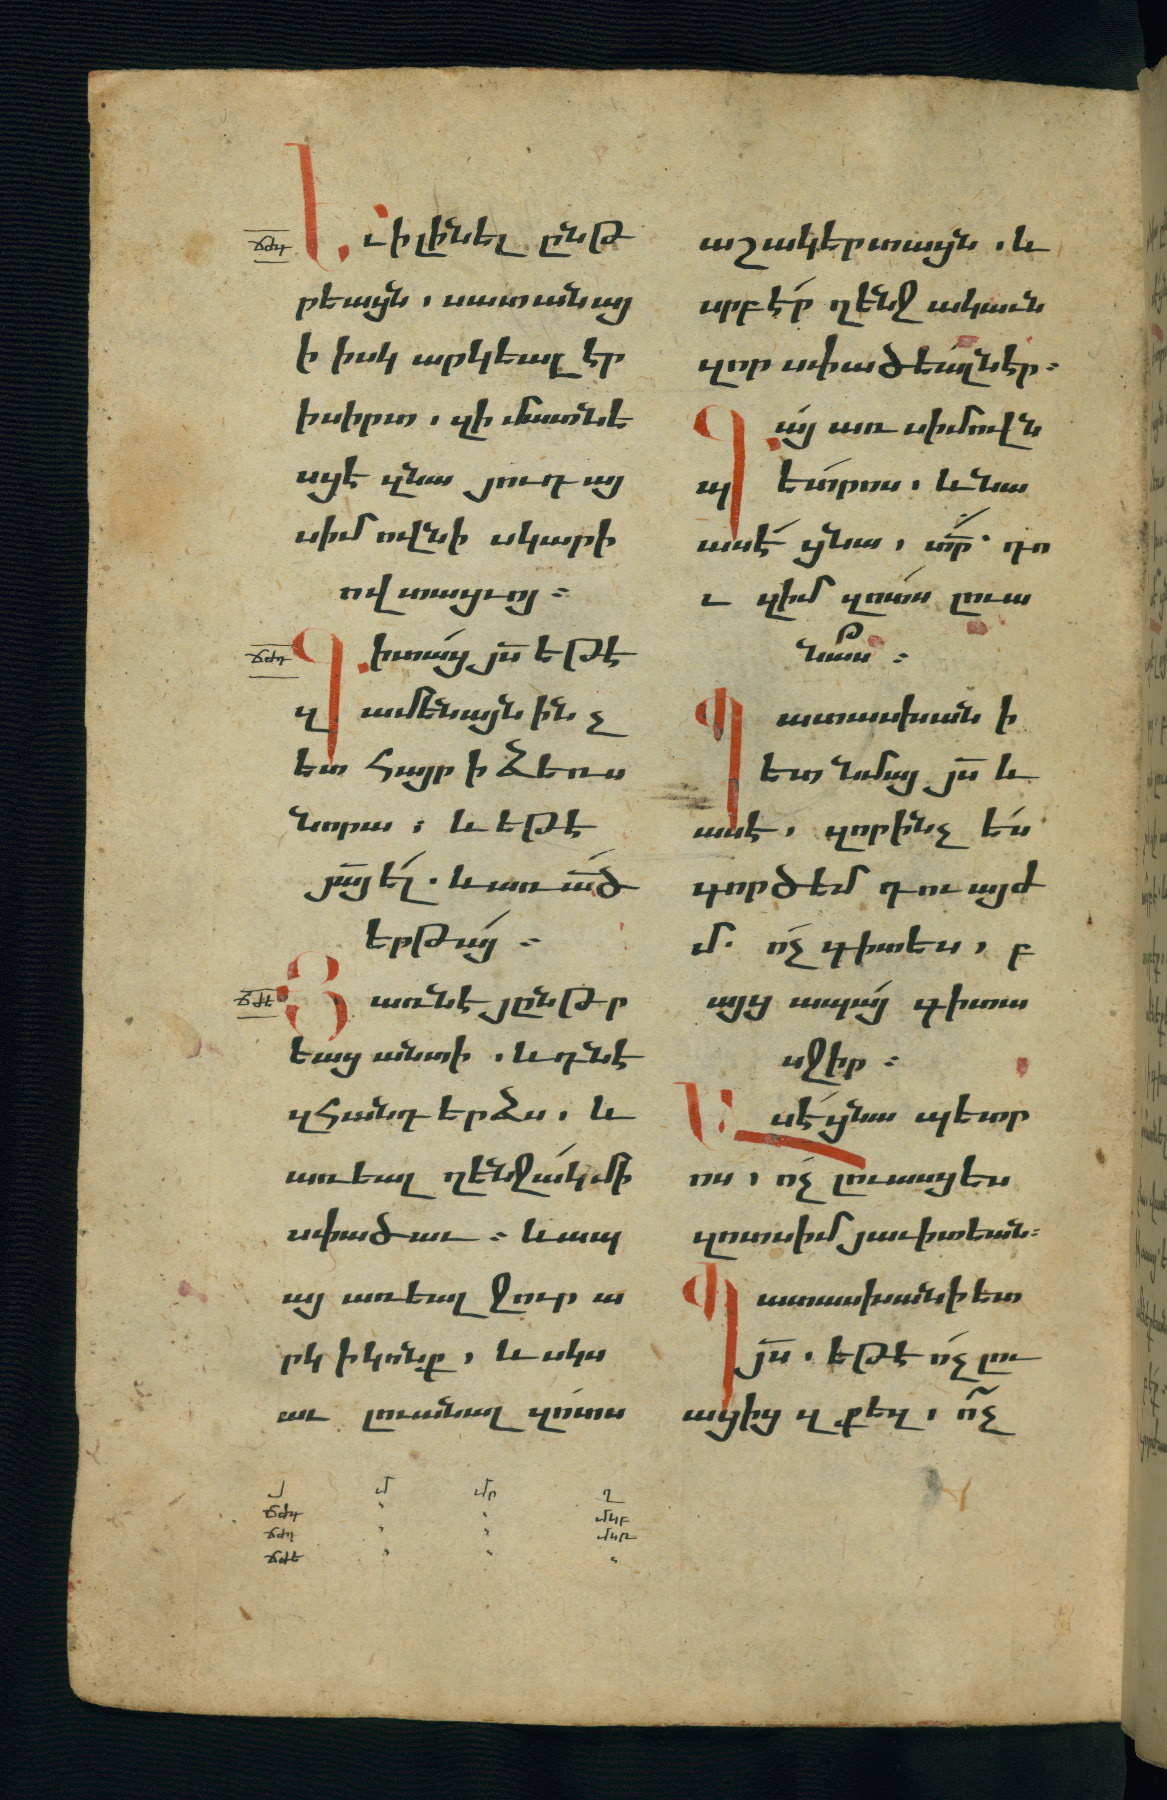 ճժգ
Եւ ի լինել ընթ
րեացն, սատանայ
ի իսկ արկեալ էր
ի սիրտ, զի մատնե
սցէ զնա յուդայ
սիմովնի սկարի
ովտացւոյ։
ճժդ
Գիտաց յս եթէ
զամենայն ինչ
ետ հայր ի ձեռս
նորա։ և եթէ
յայ ել. և առ ած
երթայ։
ճժե
Յառնէ յընթր
եաց անտի, և դնէ
զհանդերձս, և
առեալ ղենջակ մի
սփածաւ։ և ապ
այ առեալ ջուր ա
րկ ի կոնք, և սկս
աւ լուանալ զոտս
աշակերտացն, և
սրբէր ղենջակաւն
զոր սփածեալն էր։
Գայ առ սիմովն
պետրոս, և նա
ասէ ցնա, տր. դո
ւ զիմ զոտս լուա
նաս։
Պատասխանի
ետ նմայ յս և
ասէ, զոր ինչ ես
գործեմ դու այժ
մ. ոչ գիտես, բ
այց ապայ գիտա
սջիր։
Ասէ ցնա պետր
ոս, ոչ լուասցես
զոտս իմ յաւիտեան։
Պատասխանի ետ
յս. եթէ ոչ լու
ացից զքեզ, ոչ
յ մ մր ղ
ճժգ մկբ
ճժդ
ճժե